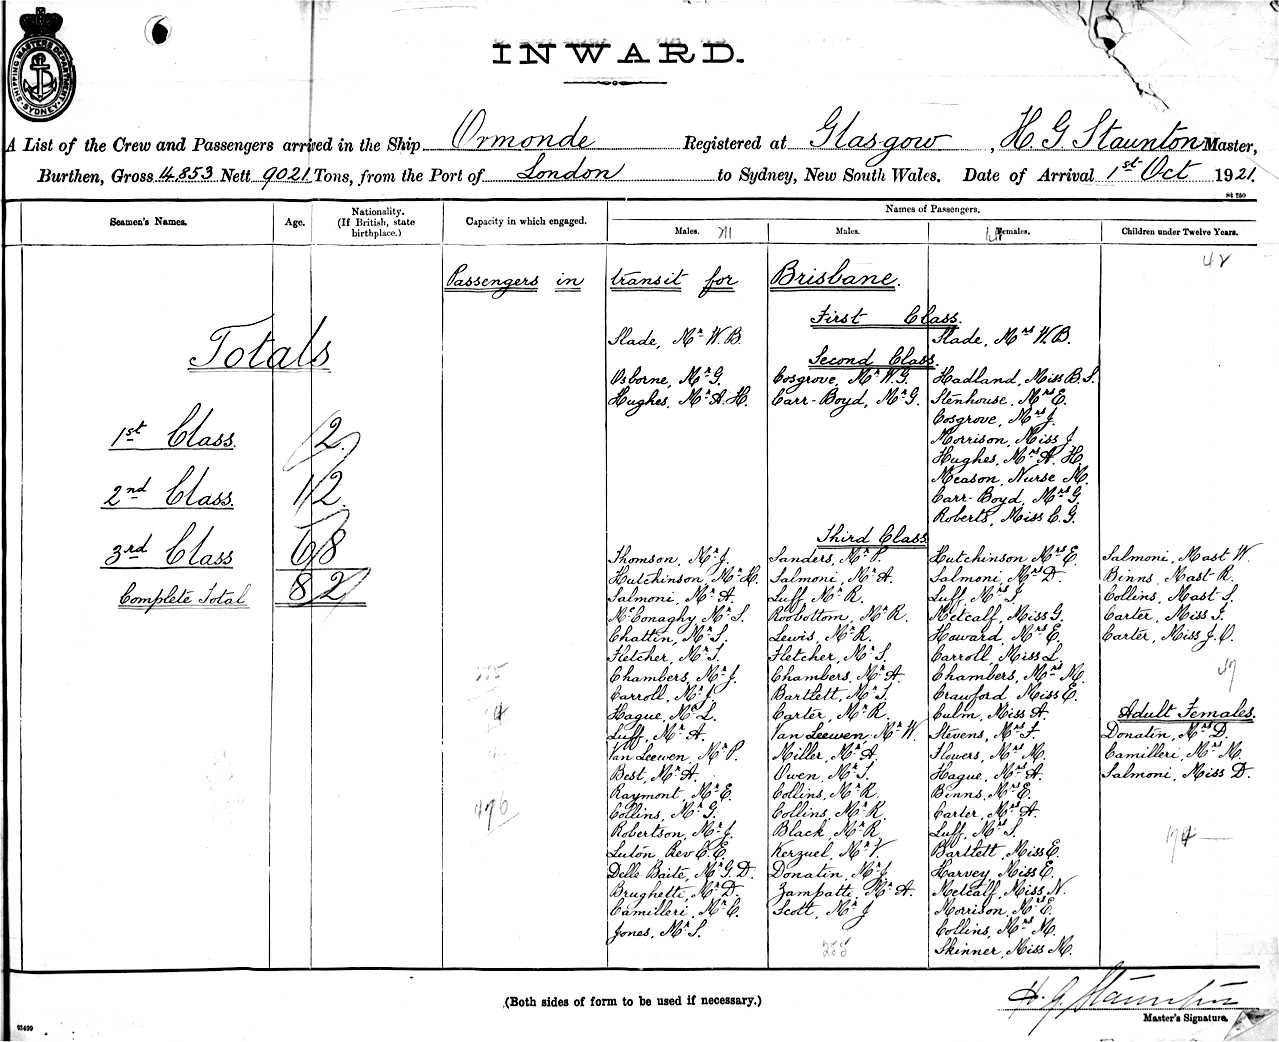 SHIPPING MASTERS DEPARTMENT SYDNEY
INWARD.
A List of the Crew and Passengers arrived in the Ship Ormonde Registered at Glasgow, H G Staunton Master,
Burthen, Gross 14.853 Nett 9021 Tons, from the Port of London to Sydney, New South Wales. Date of Arrival 1st Oct 1921.
Seamen's Names. Age. Nationality. (If British, state birthplace.) Capacity in which engaged. Names of Passengers.
Males. Males. Females. Children under Twelve Years.
42
Passengers in transit for Brisbane.
First Class.
Slade, Mr W.B. Slade, Mrs W.B.
Totals
Second Class.
Osborne, Mr G. Cosgrove, Mr W.G. Hadland, Miss B.S.
Hughes, Mr A.H. Carr-Boyd, Mr G. Stenhouse, Mrs E.
Cosgrove, Mrs J.
1st Class. 2. Morrison, Miss J.
Hughes, Mrs A.H.
Meason, Nurse M.
2nd Class. 12. Carr-Boyd, Mrs G.
Roberts, Miss C.G.
Third Class
3rd Class 68 Thomson, Mr J. Sanders, Mr P. Hutchinson Mrs E. Salmoni, Mast W.
Complete Total 82 Hutchinson, Mr H. Salmoni, Mr A. Salmoni, Mrs D. Binns, Mast R.
Salmoni, Mr A. Luff, Mr R. Luff, Mrs J. Collins, Mast S.
McConaghy Mr S. Roobottom, Mr R. Metcalf, Miss G. Carter, Miss I.
Chattin, Mr S. Lewis, Mr R. Howard, Mrs E. Carter, Miss J.O.
Fletcher, Mr S. Fletcher, Mr S. Carroll, Miss L.
Chambers, Mr J. Chambers, Mr A. Chambers, Mrs M.
Carroll, Mr J. Bartlett, Mr S. Crawford Miss E.
Hague, Mr L. Carter, Mr R. Culm, Miss A. Adult Females.
Luff, Mr A. Van Leewen Mr W. Stevens, Mrs F. Donatin, Mrs D.
Van Leewen, Mr P. Miller, Mr A. Flowers, Mrs M. Camilleri, Mrs M.
Best, Mr A. Owen, Mr S. Hague, Mrs A. Salmoni, Miss D.
Raymont, Mr E. Collins, Mr R. Binns, Mrs E.
Collins, Mr G. Collins, Mr R. Carter, Mrs A.
Robertson, Mr J. Black, Mr R. Luff, Mrs S.
Luton Rev C.E. Kerzuel, Mr V. Bartlett, Miss E.
Delle Baite, Mr G.D. Donatin, Mr J. Harvey, Miss E.
Brughetti, Mr D. Zampatti, Mr A. Metcalf, Miss N.
Camilleri, Mr C. Scott, Mr J Morrison, Mrs E.
Jones, Mr S. Collins, Mrs M.
Skinner, Miss M.
(Both sides of form to be used if necessary.)
H. G. Staunton
Master's Signature.